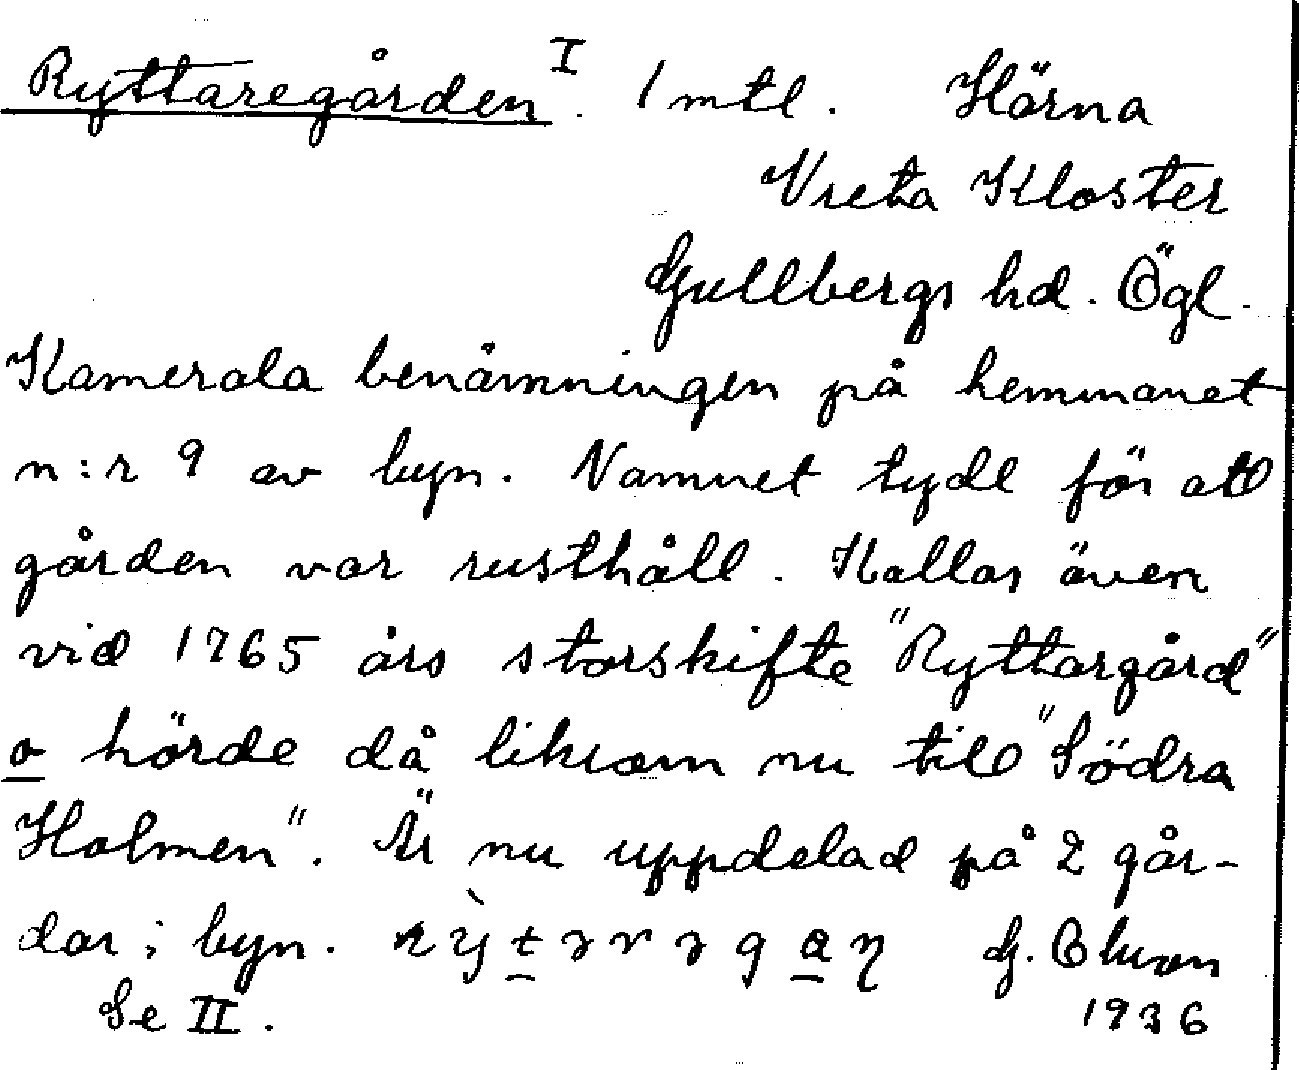 Ryttaregården I. 1 mtl. Härna
Vreta Kloster
Gullbergs hd. Ögl.
Kamerala benämningen på hemmanet
n:r 9 av byn. Namnet tydl för att
gården var rusthåll. Kallas även
vid 1765 års storskifte "Ryttargård"
o hörde då liksom nu till "Södra
Holmen". Är nu uppdelad på 2 går-
dar i byn. G. Olson
Se II. 1936